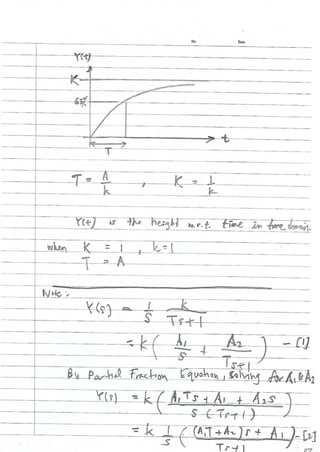 No. Date
Y(t)
K
63%
t
T
T = A/k , K = 1/k
Y(t) is the height w.r.t. time in time domain
when K = 1 , k=1
T = A
Note:
Y(s) = 1/s k/(Ts+1)
= k( A₁/s + A₂/(Ts+1) ) - [1]
By Partial Fraction Equation, solving for A₁ & A₂
Y(s) = k( (A₁Ts + A₁ + A₂s) / (s(Ts+1)) )
= k 1/s ( ((A₁T+A₂)s + A₁) / (Ts+1) ) - [2]